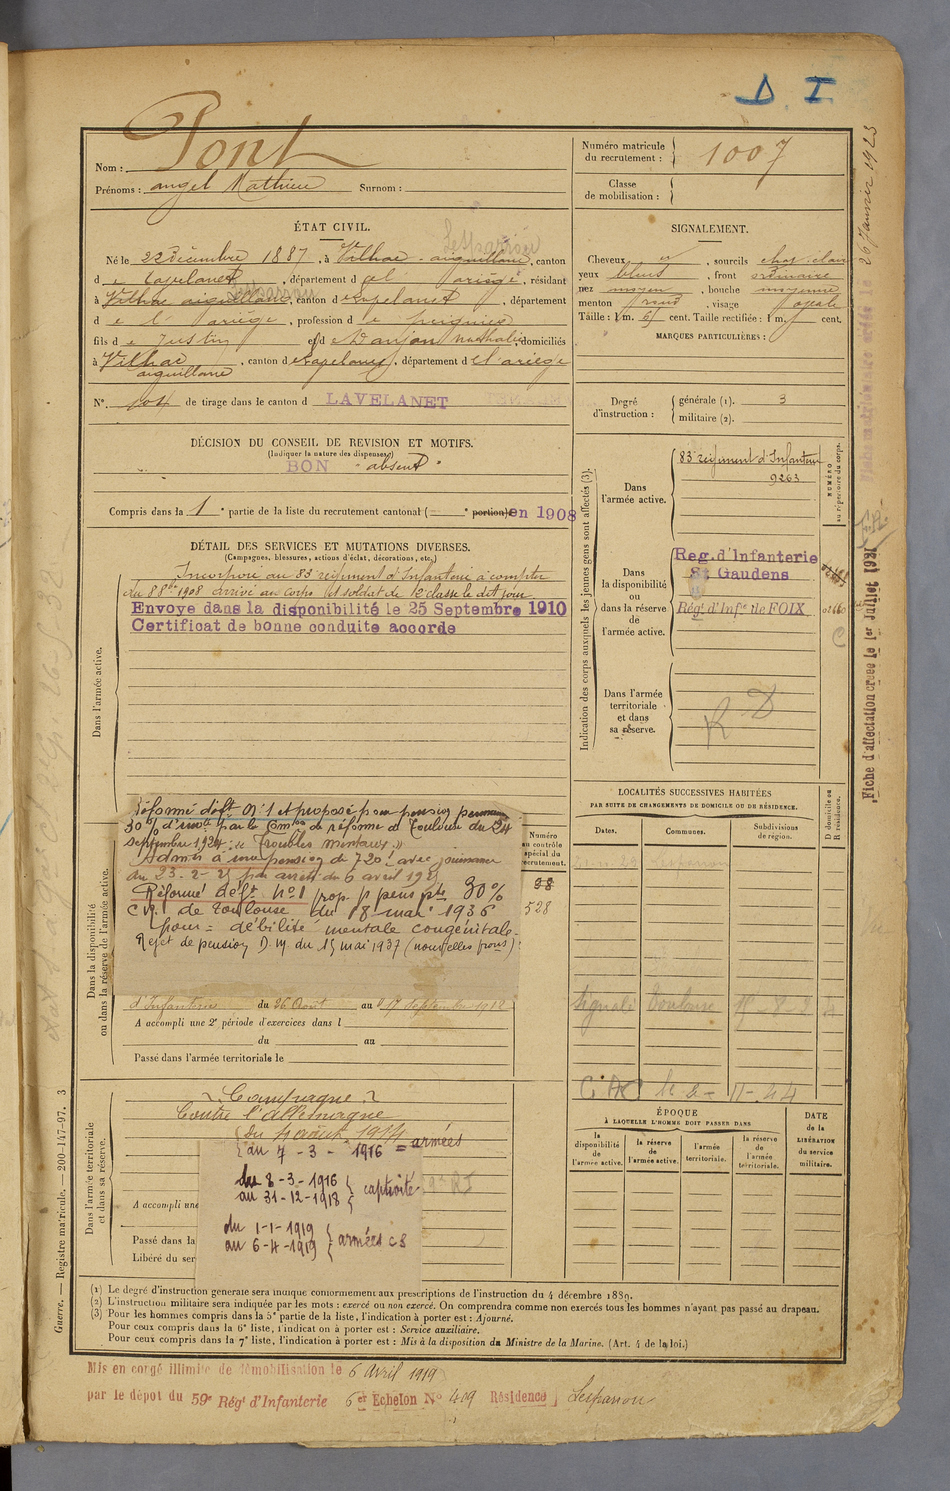 D. I.
Nom : Pont
Prénoms : angel Mathieu Surnom :
Numéro matricule du recrutement : 1007
Classe de mobilisation :
ÉTAT CIVIL.
Né le 22 Décembre 1887, à Vilhac-aiguillane, canton
de Lavelanet, département de l'ariège, résidant
à Vilhac aiguillane, canton de Lavelanet, département
de l'ariège, profession de
fils de Justin et de nathalie, domiciliés
à Vilhac aiguillane, canton de Lavelanet, département de l'ariège
N° 104 de tirage dans le canton d LAVELANET
SIGNALEMENT.
Cheveux , sourcils chat. clair
yeux bleus, front ordinaire
nez moyen, bouche moyenne
menton rond, visage ovale
Taille : 1 m. 61 cent. Taille rectifiée : 1 m. cent.
MARQUES PARTICULIÈRES :
Degré d'instruction : générale (1). 3
militaire (2).
DÉCISION DU CONSEIL DE REVISION ET MOTIFS.
(Indiquer la nature des dispenses)
BON "absent"
Compris dans la 1 e partie de la liste du recrutement cantonal ( e portion) en 1908
DÉTAIL DES SERVICES ET MUTATIONS DIVERSES.
(Campagnes, blessures, actions d'éclat, décorations, etc.)
Incorporé au 83 régiment d'Infanterie à compter
du 8 8bre 1908 arrivé au corps et soldat de 2e classe le dit jour
Envoye dans la disponibilité le 25 Septembre 1910
Certificat de bonne conduite accorde
Dans l'armée active.
Réformé déft N°1 et proposé pour pension permanente
30% d'invté par la Comon de réforme de Toulouse du 24
septembre 1924 : "Troubles mentaux"
Admis à une pension de 720f avec jouissance
du 23-2-25 par arrêté du 6 avril 1925
Réformé déft N°1 prop. p pens pte 30%
C.R.I de Toulouse du 18 mai 1936
pour = débilité mentale congénitale.
Rejet de pension D.M. du 15 mai 1937 (nouvelles prons)
Dans la disponibilité ou dans la réserve de l'armée active.
d'Infanterie du 26 Août au 17 septembre 1912
A accompli une 2e période d'exercices dans l
du au
Passé dans l'armée territoriale le
Numéro au contrôle spécial du recrutement.
98
528
Campagne
Contre l'Allemagne
du 4 août 1914
du 7-3-1916 = armées
du 8-3-1916
au 31-12-1918 captivité
du 1-1-1919
au 6-4-1919 armées CS
Dans l'armée territoriale et dans sa réserve.
A accompli une
Passé dans la
Libéré du ser
Indication des corps auxquels les jeunes gens sont affectés (3).
Dans l'armée active.
83 régiment d'Infanterie
9263
NUMÉRO au répertoire du corps.
Dans la disponibilité ou dans la réserve de l'armée active.
Reg. d'Infanterie
St Gaudens
Régt d'Infie de FOIX
Dans l'armée territoriale et dans sa réserve.
R D
LOCALITÉS SUCCESSIVES HABITÉES
PAR SUITE DE CHANGEMENTS DE DOMICILE OU DE RÉSIDENCE.
Dates. Communes. Subdivisions de région. D domicile ou R résidence.
Signalé Toulouse
ÉPOQUE
À LAQUELLE L'HOMME DOIT PASSER DANS
la disponibilité de l'armée active.
la réserve de l'armée active.
l'armée territoriale.
la réserve de l'armée territoriale.
DATE de la LIBÉRATION du service militaire.
(1) Le degré d'instruction générale sera indiqué conformément aux prescriptions de l'instruction du 4 décembre 1889.
(2) L'instruction militaire sera indiquée par les mots : exercé ou non exercé. On comprendra comme non exercés tous les hommes n'ayant pas passé au drapeau.
(3) Pour les hommes compris dans la 5e partie de la liste, l'indication à porter est : Ajourné.
Pour ceux compris dans la 6e liste, l'indication à porter est : Service auxiliaire.
Pour ceux compris dans la 7e liste, l'indication à porter est : Mis à la disposition du Ministre de la Marine. (Art. 4 de la loi.)
Guerre. — Registre matricule. — 200-147-97. 3
Mis en congé illimité de démobilisation le 6 Avril 1919
par le dépot du 59e Rég' d'Infanterie 6e Echelon N° 409 Résidence Lesparrou
Fiche d'affectation créée le 1er Juillet 1921
26 Janvier 1923